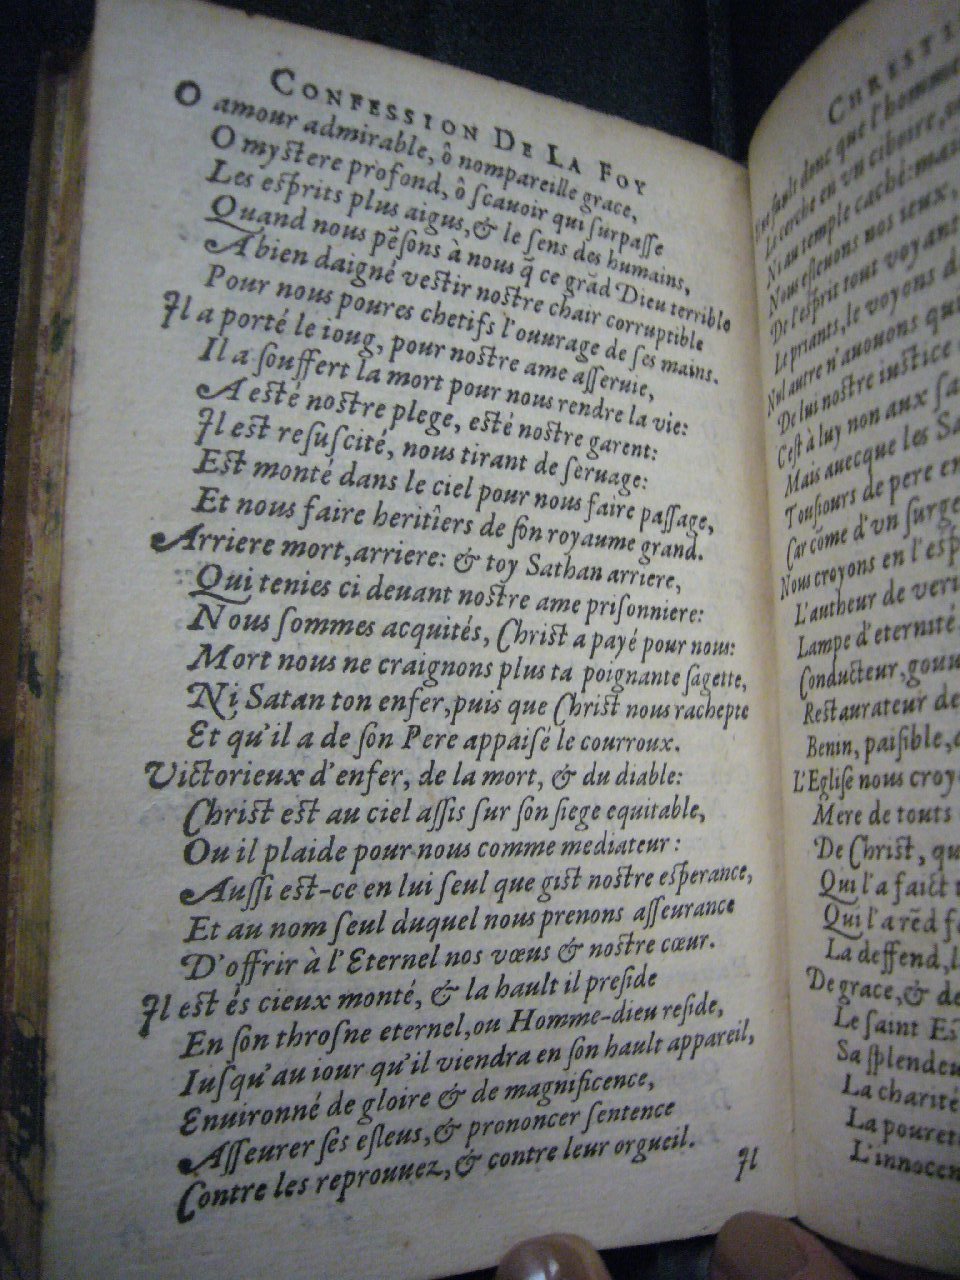 CONFESSION DE LA FOY
O amour admirable, ô nompareille grace,
O mystere profond, ô sçauoir qui surpasse
Les esprits plus aigus, & le sens des humains,
Quand nous pẽsons à nous q̃ ce grãd Dieu terrible
A bien daigné vestir nostre chair corruptible
Pour nous poures chetifs l'ouurage de ses mains.
Il a porté le ioug, pour nostre ame asseruie,
Il a souffert la mort pour nous rendre la vie:
A esté nostre plege, esté nostre garent:
Il est resuscité, nous tirant de seruage:
Est monté dans le ciel pour nous faire passage,
Et nous faire heritiers de son royaume grand.
Arriere mort, arriere: & toy Sathan arriere,
Qui tenies ci deuant nostre ame prisonniere:
Nous sommes acquités, Christ a payé pour nous:
Mort nous ne craignons plus ta poignante sagette,
Ni Satan ton enfer, puis que Christ nous rachepte
Et qu'il a de son Pere appaisé le courroux.
Victorieux d'enfer, de la mort, & du diable:
Christ est au ciel assis sur son siege equitable,
Ou il plaide pour nous comme mediateur:
Aussi est-ce en lui seul que gist nostre esperance,
Et au nom seul duquel nous prenons asseurance
D'offrir à l'Eternel nos vœus & nostre cœur.
Il est és cieux monté, & la hault il preside
En son throsne eternel, ou Homme-dieu reside,
Iusqu'au iour qu'il viendra en son hault appareil,
Enuironné de gloire & de magnificence,
Asseurer ses esleus, & prononcer sentence
Contre les reprouuez, & contre leur orgueil.
Il
CHRESTI
donc que l'homme
La cerche en vn ciboire,
Ni au temple caché:
Nous esleuons nos ieux,
De l'esprit tout voyant
Le priants, le voyons
Nul autre n'auouons
De lui nostre iustice
C'est à luy non aux
Mais auecque les
Tousiours de pere
Car cõme d'vn
Nous croyons en
L'autheur de
Lampe d'eternité
Conducteur,
Restaurateur de
Benin, paisible,
L'Eglise nous
Mere de touts
De Christ,
Qui l'a faict
Qui l'a rẽd
La deffend,
De grace, & de
Le saint
Sa
La charité
La